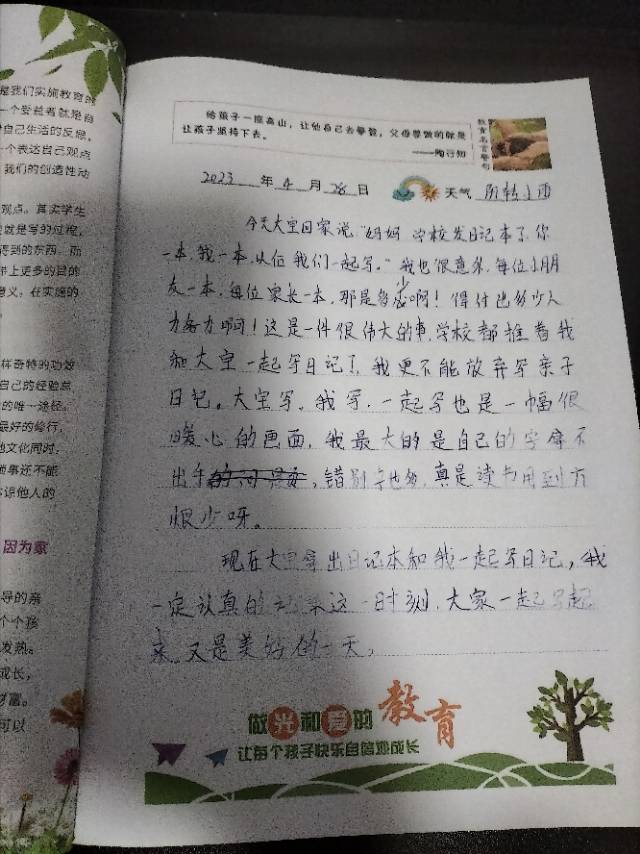 是我们实施教育的
一个受益者就是自
自己生活的反思，
一个表达自己观点
我们的创造性动
观点。其实学生
就是写的过程，
得到的东西。而
带上更多的目的
意义，在实施的
样奇特的功效
自己的经验总
的唯一途径。
最好的修行，
他文化同时，
故事还不能
谅他人的
因为家
导的亲
个个孩
发热。
成长，
财富。
可以
给孩子一座高山，让他自己去攀登，父母要做的就是
让孩子坚持下去。
——陶行知
教育名言警句
2023 年 4 月 28 日 天气 阴转小雨
今天大宝回家说，"妈妈 学校发日记本了，你
一本，我一本，以后我们一起写。"我也很意外，每位小朋
友一本，每位家长一本，那是多少啊！得付出多少人
力努力啊！这是一件很伟大的事，学校都推着我
和大宝一起写日记了，我更不能放弃写亲子
日记。大宝写，我写，一起写也是一幅很
暖心的画面，我最大的是自己的字拿不
出手，错别字也多，真是读书用到方
恨少呀。
现在大宝拿出日记本和我一起写日记，我
一定认真的这一时刻，大家一起写起
来，又是美好的一天，
做光和爱的教育
让每个孩子快乐自信地成长